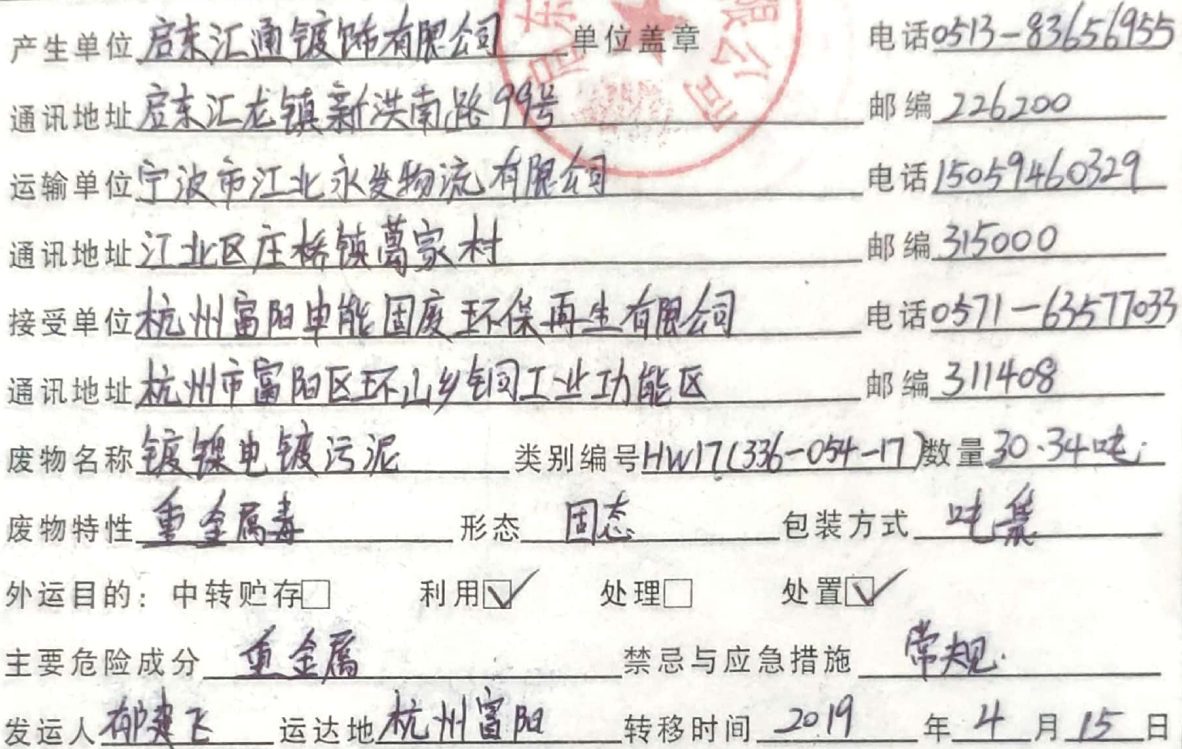 产生单位 启东汇通镀饰有限公司 单位盖章 电话 0513-83656955
通讯地址 启东汇龙镇新洪南路99号 邮编 226200
运输单位 宁波市江北永发物流有限公司 电话 15059460329
通讯地址 江北区庄桥镇葛家村 邮编 315000
接受单位 杭州富阳申能固废环保再生有限公司 电话 0571-63577033
通讯地址 杭州市富阳区环山乡铜工业功能区 邮编 311408
废物名称 镀镍电镀污泥 类别编号 HW17(336-054-17) 数量 30.34吨
废物特性 重金属毒 形态 固态 包装方式 吨袋
外运目的：中转贮存□ 利用☑ 处理□ 处置☑
主要危险成分 重金属 禁忌与应急措施 常规
发运人 郁建飞 运达地 杭州富阳 转移时间 2019 年 4 月 15 日